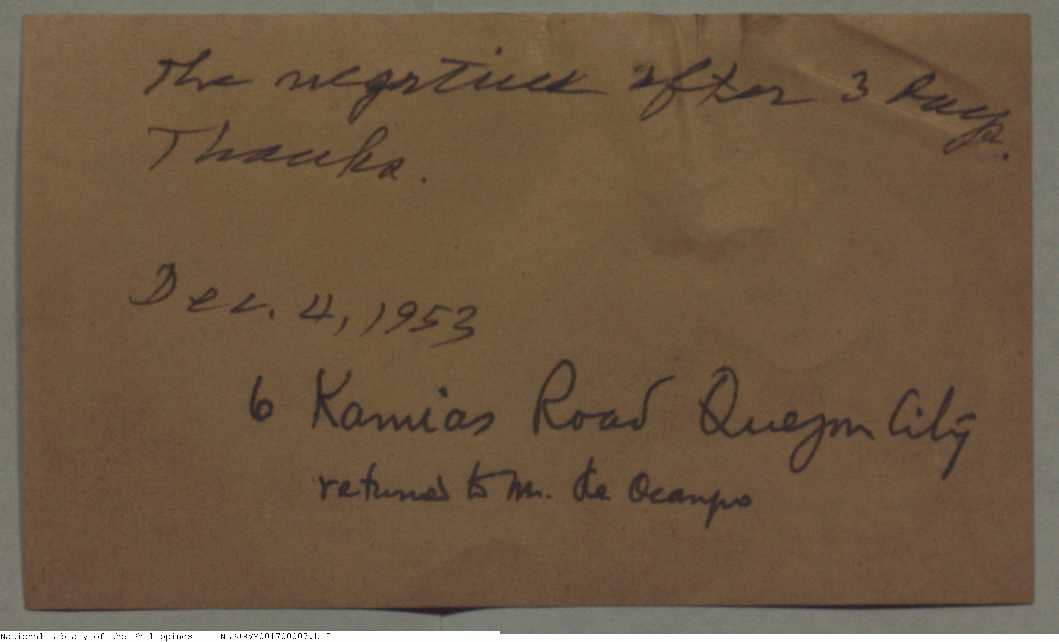 The negatives after 3 days.
Thanks.
Dec. 4, 1953
6 Kamias Road Quezon City
returned to Mr. de Ocampo
National Library of the Philippines